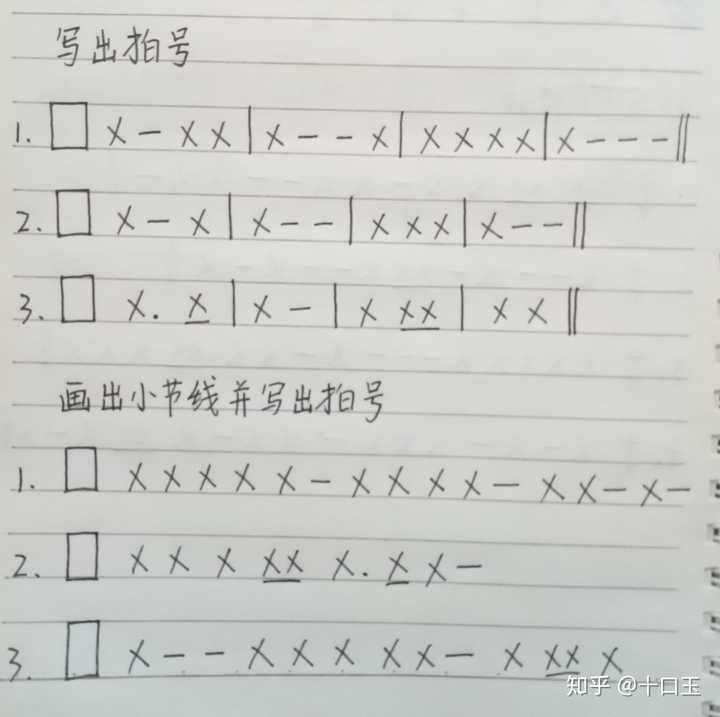 写出拍号
1. □ X - X X | X - - X | X X X X | X - - - ‖
2. □ X - X | X - - | X X X | X - - ‖
3. □ X. X̲ | X - | X X̲X̲ | X X ‖
画出小节线并写出拍号
1. □ X X X X X - X X X X - X X - X -
2. □ X X X X̲X̲ X. X̲ X -
3. □ X - - X X X X X - X X̲X̲ X
知乎 @十口玉